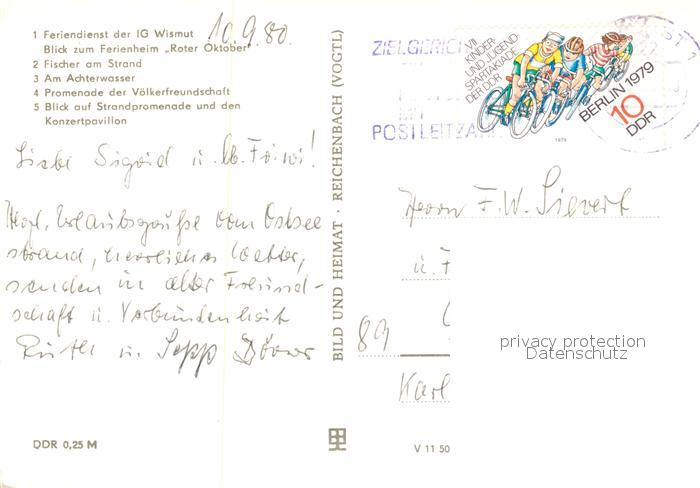 1 Feriendienst der IG Wismut
Blick zum Ferienheim „Roter Oktober"
2 Fischer am Strand
3 Am Achterwasser
4 Promenade der Völkerfreundschaft
5 Blick auf Strandpromenade und den
Konzertpavillon
10.9.80.
Liebe Sigrid u. lb. Friwi!
Herzl. Urlaubsgrüße vom Ostsee
strand, herrliches Wetter,
senden in alter Freund-
schaft u. Verbundenheit
Ruth u. Sepp
DDR 0,25 M
BILD UND HEIMAT · REICHENBACH (VOGTL)
ZIELGERICH
POSTLEITZAH
VII.
KINDER-
UND JUGEND-
SPARTAKIADE
DER DDR
BERLIN 1979
10
DDR
1979
Herrn F.W. Sievert
u. F
89
Karl
privacy protection
Datenschutz
V 11 50